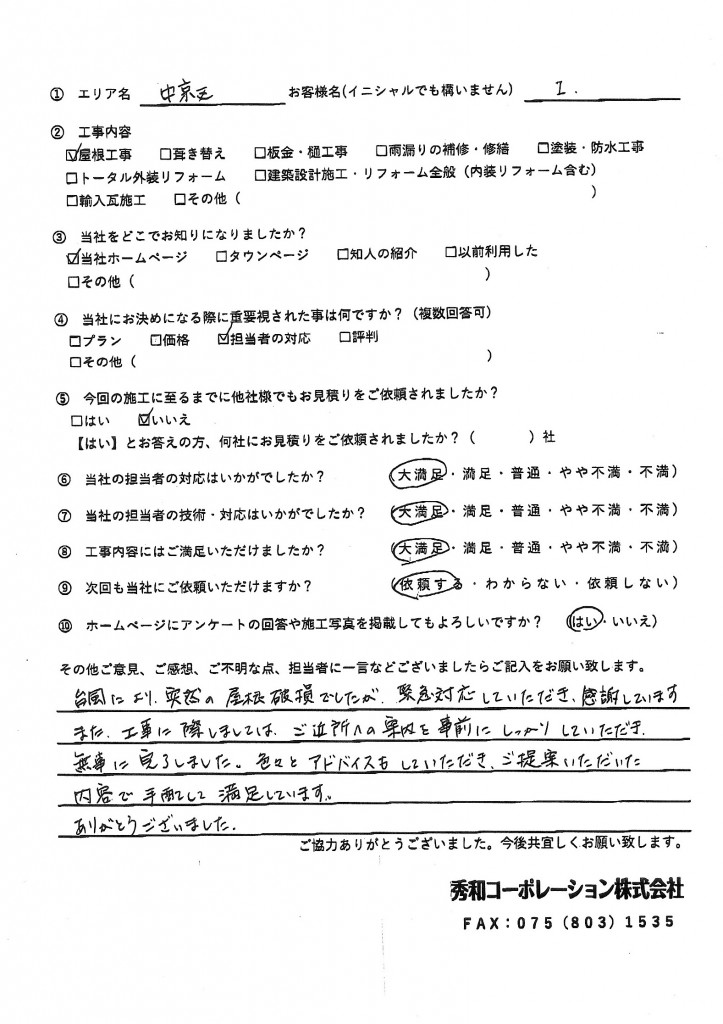 ① エリア名 中京区 お客様名(イニシャルでも構いません) I.
② 工事内容
☑屋根工事 □葺き替え □板金・樋工事 □雨漏りの補修・修繕 □塗装・防水工事
□トータル外装リフォーム □建築設計施工・リフォーム全般（内装リフォーム含む）
□輸入瓦施工 □その他（ ）
③ 当社をどこでお知りになりましたか？
☑当社ホームページ □タウンページ □知人の紹介 □以前利用した
□その他（ ）
④ 当社にお決めになる際に重要視された事は何ですか？（複数回答可）
□プラン □価格 ☑担当者の対応 □評判
□その他（ ）
⑤ 今回の施工に至るまでに他社様でもお見積りをご依頼されましたか？
□はい ☑いいえ
【はい】とお答えの方、何社にお見積りをご依頼されましたか？（ ）社
⑥ 当社の担当者の対応はいかがでしたか？ （大満足・満足・普通・やや不満・不満）
⑦ 当社の担当者の技術・対応はいかがでしたか？ （大満足・満足・普通・やや不満・不満）
⑧ 工事内容にはご満足いただけましたか？ （大満足・満足・普通・やや不満・不満）
⑨ 次回も当社にご依頼いただけますか？ （依頼する・わからない・依頼しない）
⑩ ホームページにアンケートの回答や施工写真を掲載してもよろしいですか？ （はい・いいえ）
その他ご意見、ご感想、ご不明な点、担当者に一言などございましたらご記入をお願い致します。
台風により、突然の屋根破損でしたが、緊急対応していただき、感謝しています
また、工事に際しましては、ご近所への案内を事前にしっかりしていただき、
無事に完了しました。色々とアドバイスもしていただき、ご提案いただいた
内容で 満足しています。
ありがとうございました。
ご協力ありがとうございました。今後共宜しくお願い致します。
秀和コーポレーション株式会社
FAX：075（803）1535